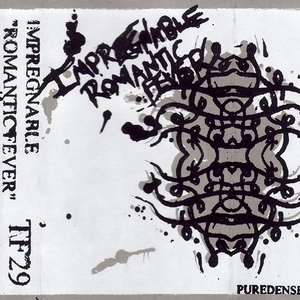 IMPREGNABLE
"ROMANTIC FEVER"
TF29
IMPREGNABLE
ROMANTIC
FEVER